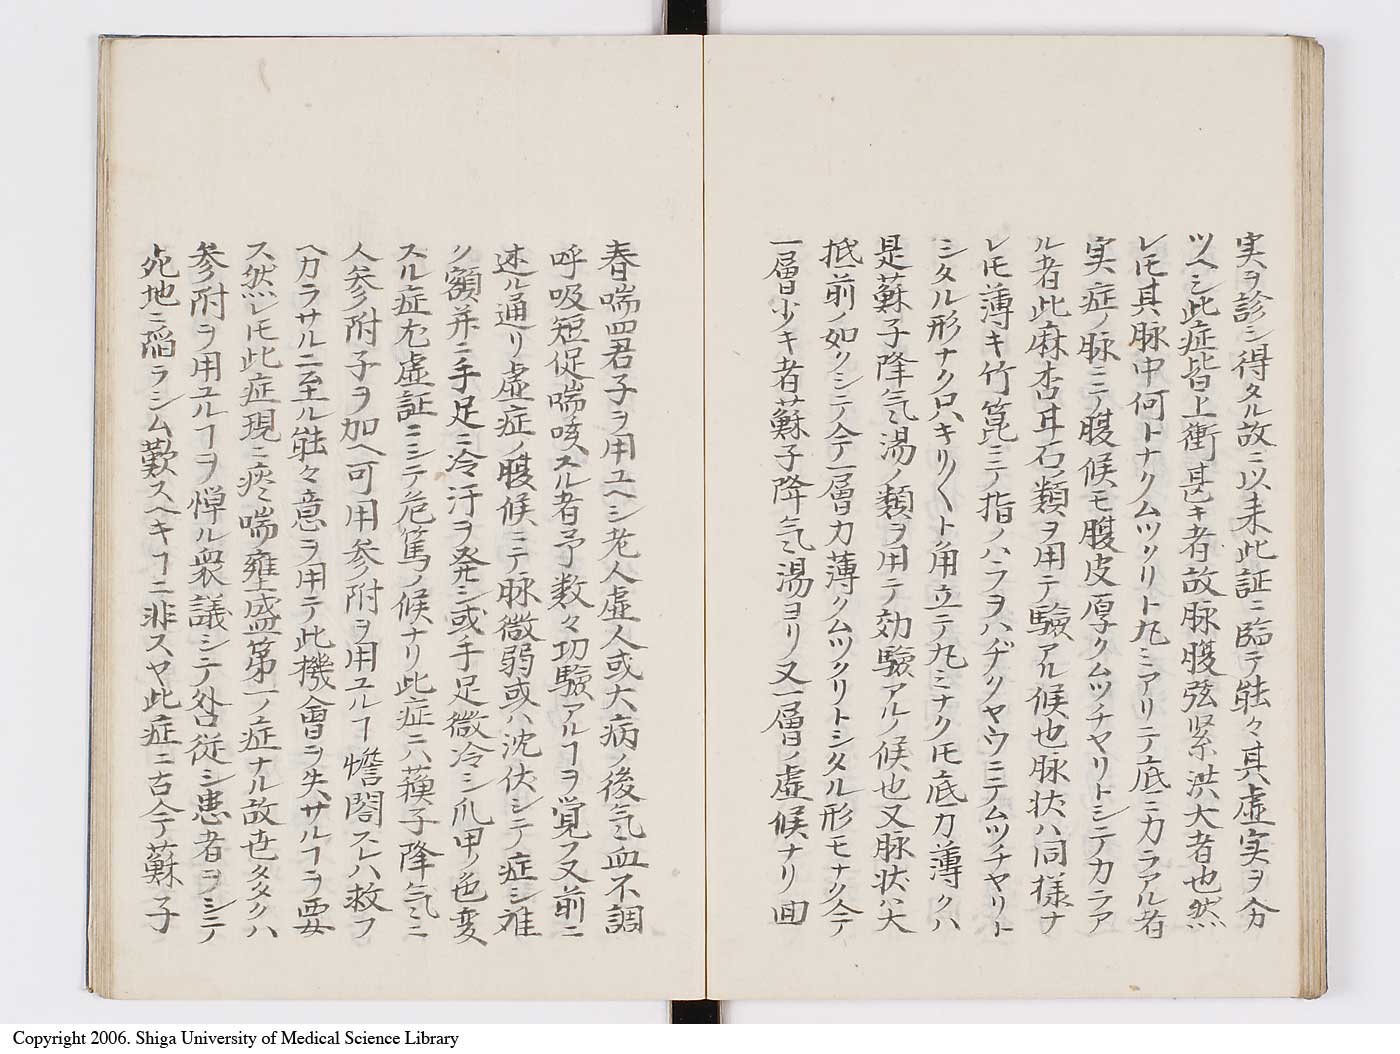 実ヲ診シ得タル故ニ以来此証ニ臨テ能々其虚実ヲ分
ツヘシ此症皆上衝甚キ者故脉腹弦緊洪大者也然
レ𪜈其脉中何トナクムツクリト丸ミアリテ底ニ力ラアル者
実症ノ脉ニテ腹候モ腹皮厚クムツチヤリトシテ力ラア
ル者此麻杏甘石ノ類ヲ用テ驗アル候也脉状ハ同様ナ
レ𪜈薄キ竹箆ニテ指ノハラヲハヂクヤウニテムツチヤリト
シタル形ナク只キリ〱ト角立テ丸ミナク𪜈底力薄クハ
是蘇子降气湯ノ類ヲ用テ効驗アルノ候也又脉状ハ大
抵前ノ如クシテ今一層力薄クムツクリトシタル形モナク今
一層少キ者蘇子降气湯ヨリ又一層ノ虚候ナリ回
春喘四君子ヲ用ユヘシ老人虚人或大病ノ後气血不調
呼吸短促喘咳スル者予数々功驗アルヿヲ覚フ又前ニ
述ル通リ虚症ノ腹候ニテ脉微弱或ハ沈伏シテ症シ難
ク額并ニ手足ニ冷汗ヲ発シ或手足微冷シ爪甲ノ色変
スル症尤虚証ニシテ危篤ノ候ナリ此症ニハ蘓子降气ニ
人参附子ヲ加ヘ可用参附ヲ用ユルヿ憺閣スレハ救フ
ヘカラサルニ至ル能々意ヲ用テ此機會ヲ失サルヿヲ要
ス然レ𪜈此症現ニ痰喘壅盛第一ノ症ナル故世タタクハ
参附ヲ用ユルヿヲ憚ル衆議シテ外従シ患者ヲシテ
死地ニ陥ラシム歎スヘキヿニ非スヤ此症ニ古今蘇子
Copyright 2006. Shiga University of Medical Science Library